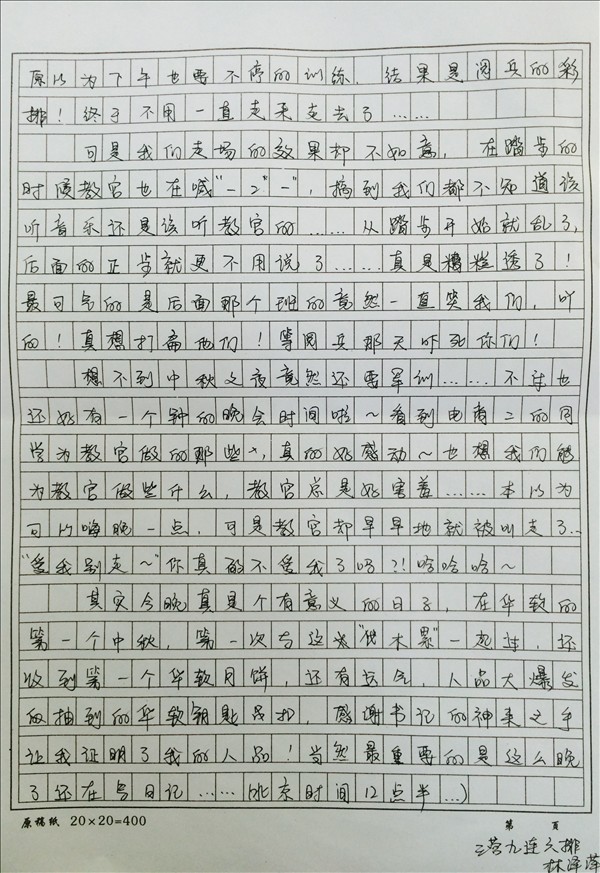 原以为下午也要不停的训练，结果是阅兵的彩
排！终于不用一直走来走去了……
可是我们走场的效果却不如意，在踏步的
时候教官也在喊"一 2 一"，搞到我们都不知道该
听音乐还是该听教官的……从踏步开始就乱了，
后面的正步就更不用说了……真是糟糕透了！
最可气的是后面那个班的竟然一直笑我们，
的！真想打扁他们！等阅兵那天吓死你们！
想不到中秋之夜竟然还要军训……不过也
还好有一个钟的晚会时间啦～看到电商二的同
学为教官做的那些，真的好感动～也想我们能
为教官做些什么，教官总是好害羞……本以为
可以嗨晚一点，可是教官却早早地就被叫走了…
"爱我别走～"你真的不爱我了吗？！哈哈哈～
其实今晚真是个有意义的日子，在华软的
第一个中秋，第一次与这一起过，还
收到第一个华软月饼，还有运气，人品大爆发
的抽到的华软钥匙吊扣，感谢书记的神来之手
让我证明了我的人品！当然最重要的是这么晚
了还在写日记……（北京时间12点半…）
原稿纸 20×20=400
第 页
三营九连六排
林泽萍